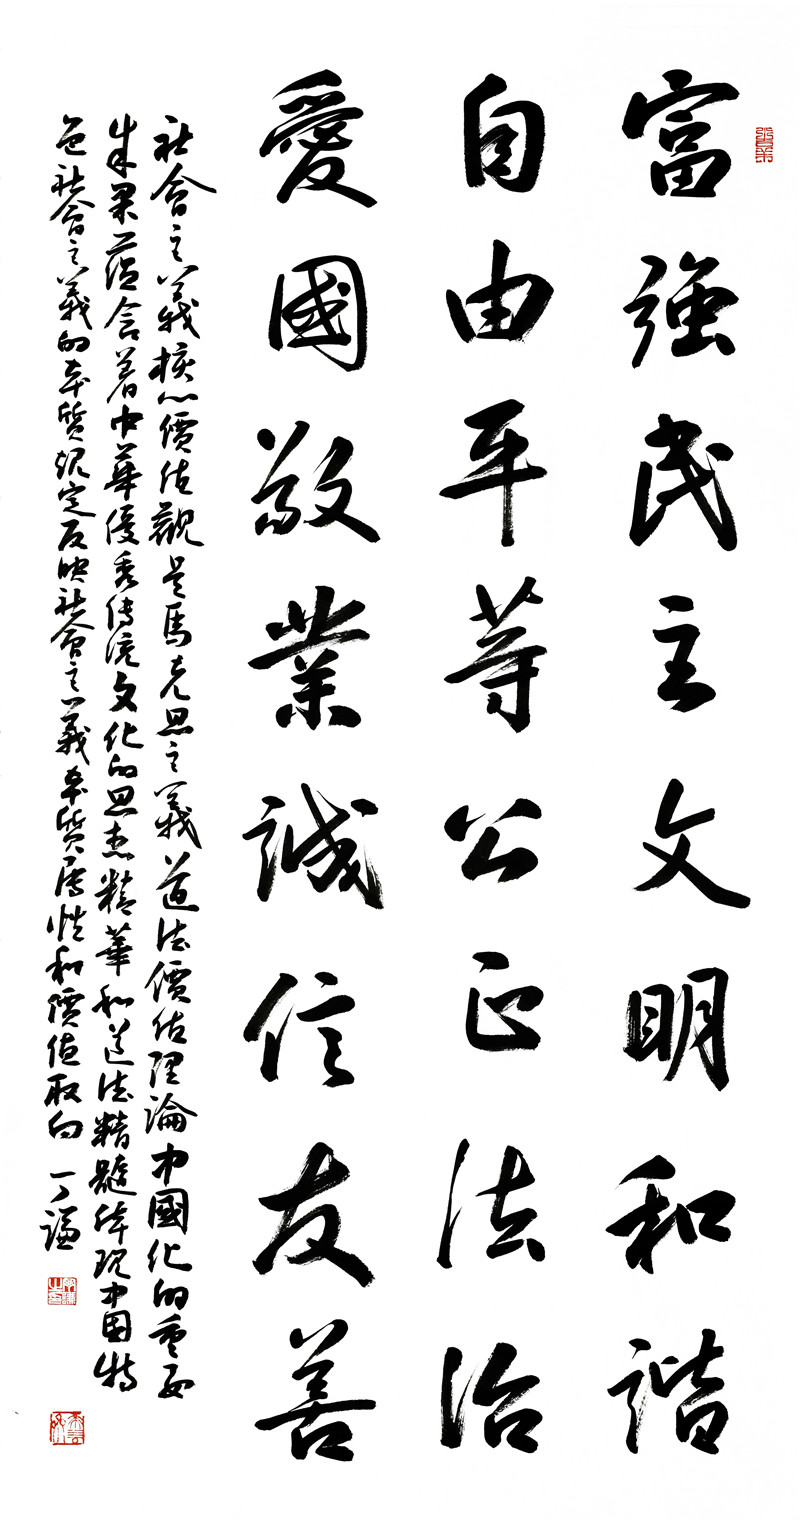 富強民主文明和諧
自由平等公正法治
愛國敬業誠信友善
社會主義核心價值觀是馬克思主義道德價值理論中國化的重要
成果蕴含著中華優秀傳統文化的思想精華和道德精髓体現中国特
色社會主義的本質規定反映社會主義本質屬性和價值取向 丁謙